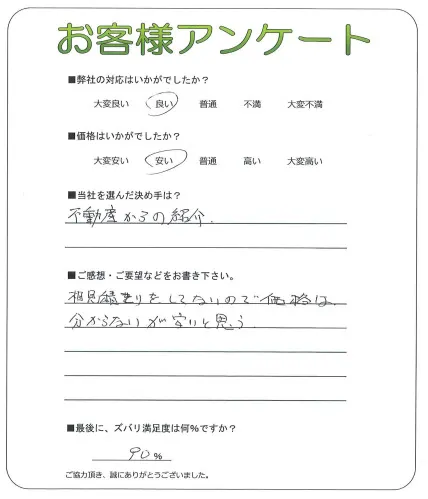 お客様アンケート
■弊社の対応はいかがでしたか?
大変良い 良い 普通 不満 大変不満
■価格はいかがでしたか?
大変安い 安い 普通 高い 大変高い
■当社を選んだ決め手は?
不動産からの紹介.
■ご感想・ご要望などをお書き下さい。
相見積りをしてないので価格は、
分からないが安いと思う.
■最後に、ズバリ満足度は何%ですか?
90%
ご協力頂き、誠にありがとうございました。